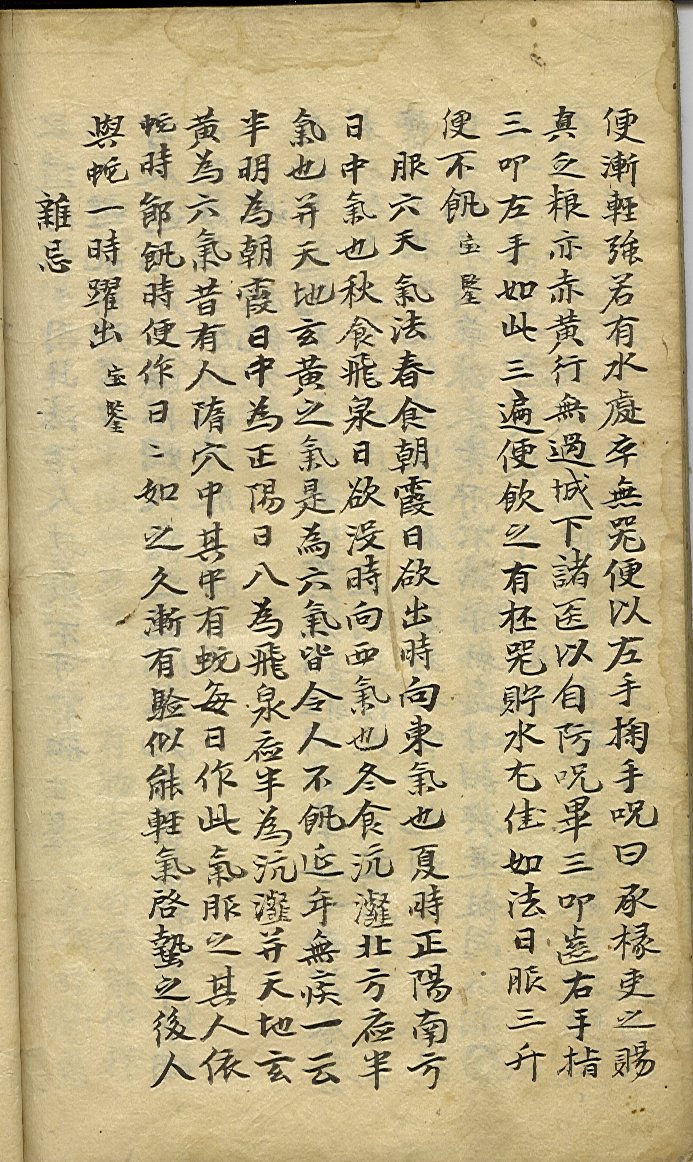 便漸輕強若有水處卒無器便以左手掬手呪曰承椽吏之賜
真乏粮亦赤黄行無過城下諸医以自防呪畢三叩齒右手指
三叩左手如此三遍便飲之有杯器貯水尤佳如法日服三升
便不飢 宝鑒
服六天氣法春食朝霞日欲出時向東氣也夏時正陽南方
日中氣也秋食飛泉日欲没時向西氣也冬食沆瀣北方夜半
氣也并天地玄黄之氣是為六氣皆令人不飢延年無疾一云
半明為朝霞日中為正陽日入為飛泉夜半為沆瀣并天地玄
黄為六氣昔有人隋穴中其中有蛇每日作此氣服之其人依
蛇時節飢時便作日〻如之久漸有驗似能軽氣啓蟄之後人
與蛇一時躍出 宝鑒
雜忌